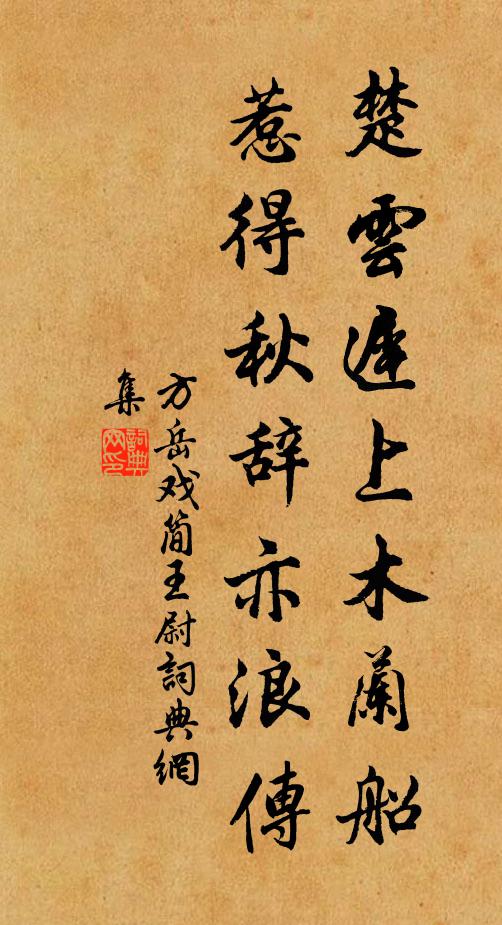 楚雲遲上木蘭船
惹得秋辞亦浪傳
方岳戏简王尉詞典網
集
詞典網印